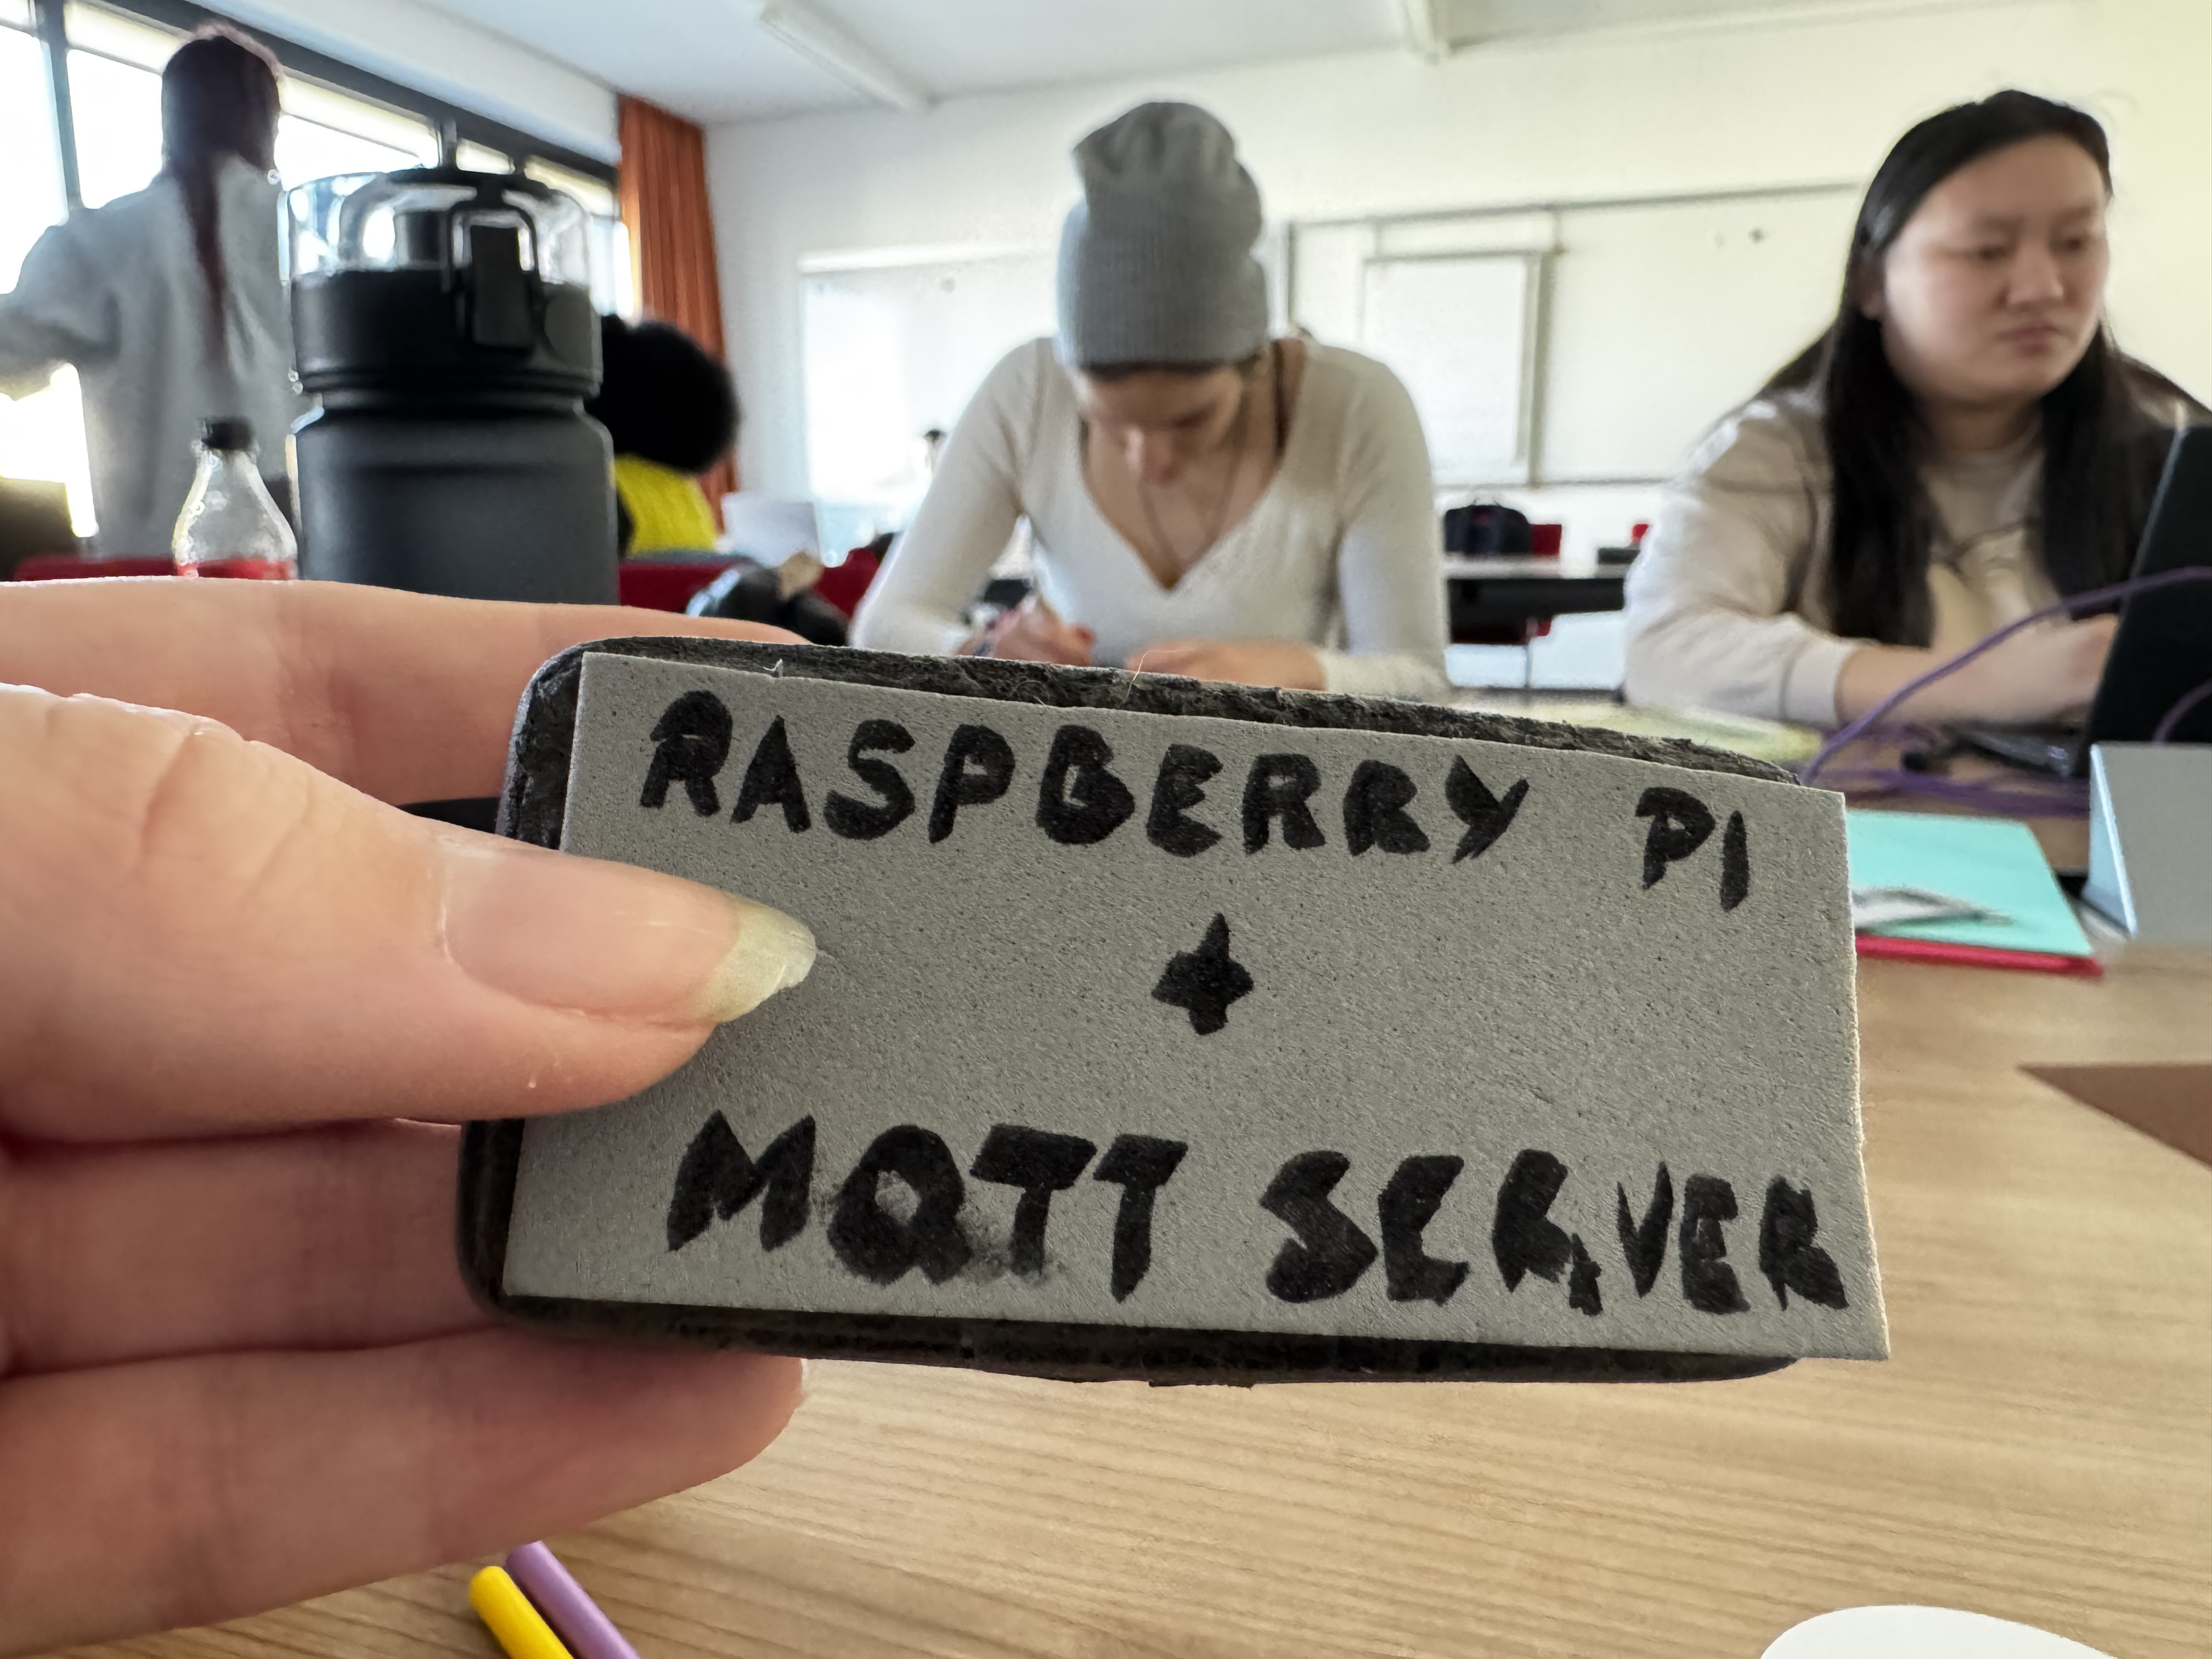 RASPBERRY PI
+
MQTT SERVER